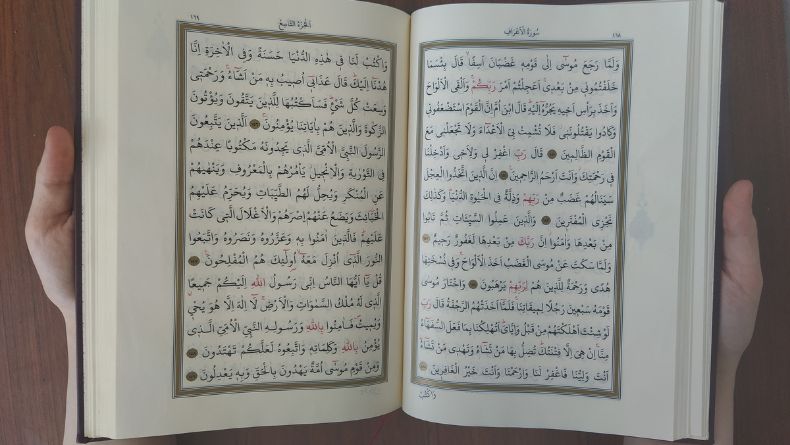 سُورَةُ الْاَعْرَافِ ١٦٨
وَلَمَّا رَجَعَ مُوسٰٓى اِلٰى قَوْمِه۪ غَضْبَانَ اَسِفًا قَالَ بِئْسَمَا
خَلَفْتُمُون۪ى مِنْ بَعْد۪ى اَعَجِلْتُمْ اَمْرَ رَبِّكُمْ وَاَلْقَى الْاَلْوَاحَ
وَاَخَذَ بِرَأْسِ اَخ۪يهِ يَجُرُّهُٓ اِلَيْهِ قَالَ ابْنَ اُمَّ اِنَّ الْقَوْمَ اسْتَضْعَفُون۪ى
وَكَادُوا يَقْتُلُونَن۪ى فَلَا تُشْمِتْ بِىَ الْاَعْدَٓاءَ وَلَا تَجْعَلْن۪ى مَعَ
الْقَوْمِ الظَّالِم۪ينَ ١٥٠ قَالَ رَبِّ اغْفِرْ ل۪ى وَلِاَخ۪ى وَاَدْخِلْنَا
ف۪ى رَحْمَتِكَ وَاَنْتَ اَرْحَمُ الرَّاحِم۪ينَ ١٥١ اِنَّ الَّذ۪ينَ اتَّخَذُوا الْعِجْلَ
سَيَنَالُهُمْ غَضَبٌ مِنْ رَبِّهِمْ وَذِلَّةٌ فِى الْحَيٰوةِ الدُّنْيَا وَكَذٰلِكَ
نَجْزِى الْمُفْتَر۪ينَ ١٥٢ وَالَّذ۪ينَ عَمِلُوا السَّيِّـَٔاتِ ثُمَّ تَابُوا
مِنْ بَعْدِهَا وَاٰمَنُٓوا اِنَّ رَبَّكَ مِنْ بَعْدِهَا لَغَفُورٌ رَح۪يمٌ ١٥٣
وَلَمَّا سَكَتَ عَنْ مُوسَى الْغَضَبُ اَخَذَ الْاَلْوَاحَ وَف۪ى نُسْخَتِهَا
هُدًى وَرَحْمَةٌ لِلَّذ۪ينَ هُمْ لِرَبِّهِمْ يَرْهَبُونَ ١٥٤ وَاخْتَارَ مُوسٰى
قَوْمَهُ سَبْع۪ينَ رَجُلًا لِم۪يقَاتِنَا فَلَمَّٓا اَخَذَتْهُمُ الرَّجْفَةُ قَالَ رَبِّ
لَوْ شِئْتَ اَهْلَكْتَهُمْ مِنْ قَبْلُ وَاِيَّاىَ اَتُهْلِكُنَا بِمَا فَعَلَ السُّفَهَٓاءُ
مِنَّا اِنْ هِىَ اِلَّا فِتْنَتُكَ تُضِلُّ بِهَا مَنْ تَشَٓاءُ وَتَهْد۪ى مَنْ تَشَٓاءُ
اَنْتَ وَلِيُّنَا فَاغْفِرْ لَنَا وَارْحَمْنَا وَاَنْتَ خَيْرُ الْغَافِر۪ينَ ١٥٥
وَاكْتُبْ
اَلْجُزْءُ التَّاسِعُ ١٦٩
وَاكْتُبْ لَنَا ف۪ى هٰذِهِ الدُّنْيَا حَسَنَةً وَفِى الْاٰخِرَةِ اِنَّا
هُدْنَٓا اِلَيْكَ قَالَ عَذَاب۪ٓى اُص۪يبُ بِه۪ مَنْ اَشَٓاءُ وَرَحْمَت۪ى
وَسِعَتْ كُلَّ شَىْءٍ فَسَاَكْتُبُهَا لِلَّذ۪ينَ يَتَّقُونَ وَيُؤْتُونَ
الزَّكٰوةَ وَالَّذ۪ينَ هُمْ بِاٰيَاتِنَا يُؤْمِنُونَ ١٥٦ اَلَّذ۪ينَ يَتَّبِعُونَ
الرَّسُولَ النَّبِىَّ الْاُمِّىَّ الَّذ۪ى يَجِدُونَهُ مَكْتُوبًا عِنْدَهُمْ
فِى التَّوْرٰيةِ وَالْاِنْج۪يلِ يَأْمُرُهُمْ بِالْمَعْرُوفِ وَيَنْهٰيهُمْ
عَنِ الْمُنْكَرِ وَيُحِلُّ لَهُمُ الطَّيِّبَاتِ وَيُحَرِّمُ عَلَيْهِمُ
الْخَبَٓائِثَ وَيَضَعُ عَنْهُمْ اِصْرَهُمْ وَالْاَغْلَالَ الَّت۪ى كَانَتْ
عَلَيْهِمْ فَالَّذ۪ينَ اٰمَنُوا بِه۪ وَعَزَّرُوهُ وَنَصَرُوهُ وَاتَّبَعُوا
النُّورَ الَّذ۪ٓى اُنْزِلَ مَعَهُٓ اُولٰٓئِكَ هُمُ الْمُفْلِحُونَ ١٥٧
قُلْ يَٓا اَيُّهَا النَّاسُ اِنّ۪ى رَسُولُ اللّٰهِ اِلَيْكُمْ جَم۪يعًا
الَّذ۪ى لَهُ مُلْكُ السَّمٰوَاتِ وَالْاَرْضِ لَٓا اِلٰهَ اِلَّا هُوَ يُحْي۪ى
وَيُم۪يتُ فَاٰمِنُوا بِاللّٰهِ وَرَسُولِهِ النَّبِىِّ الْاُمِّىِّ الَّذ۪ى
يُؤْمِنُ بِاللّٰهِ وَكَلِمَاتِه۪ وَاتَّبِعُوهُ لَعَلَّكُمْ تَهْتَدُونَ ١٥٨
وَمِنْ قَوْمِ مُوسٰٓى اُمَّةٌ يَهْدُونَ بِالْحَقِّ وَبِه۪ يَعْدِلُونَ ١٥٩